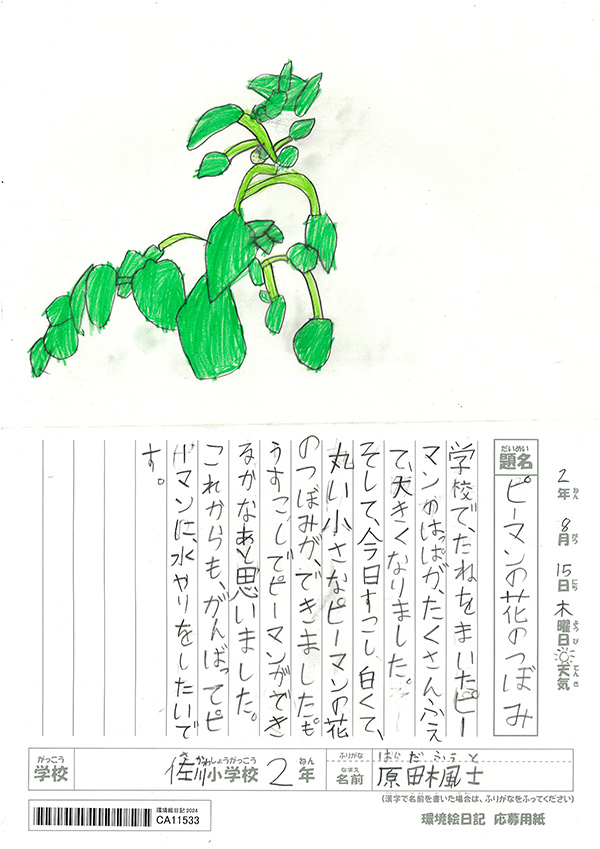 2年 8月 15日 木曜日 天気
ねん がつ にち ようび てんき
題名 ピーマンの花のつぼみ
だいめい
学校で、たねをまいたピー
マンのはっぱが、たくさんふえ
て、大きくなりました。
そして、今日すこし白くて、
丸い小さなピーマンの花
のつぼみが、できました。も
うすこしでピーマンができ
るかなぁと思いました。
これからも、がんばってピ
ーマンに、水やりをしたいで
す。
がっこう さかわしょうがっこう ねん
学校 佐川小学校 2年
ふりがな はらだ ふうと
なまえ
名前 原田楓士
(漢字で名前を書いた場合は、ふりがなをふってください)
環境絵日記 2024
CA11533
環境絵日記 応募用紙